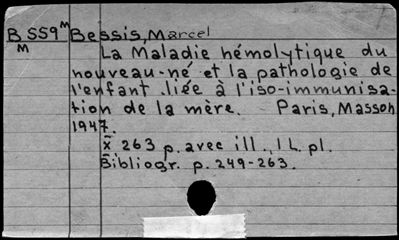 B 559ᴹ Bessis, Marcel
M La Maladie hémolytique du
nouveau-né et la pathologie de
l'enfant liée à l'iso-immunisa-
tion de la mère. Paris, Masson
1947.
x 263 p. avec ill., 1 L. pl.
Bibliogr. p. 249-263.